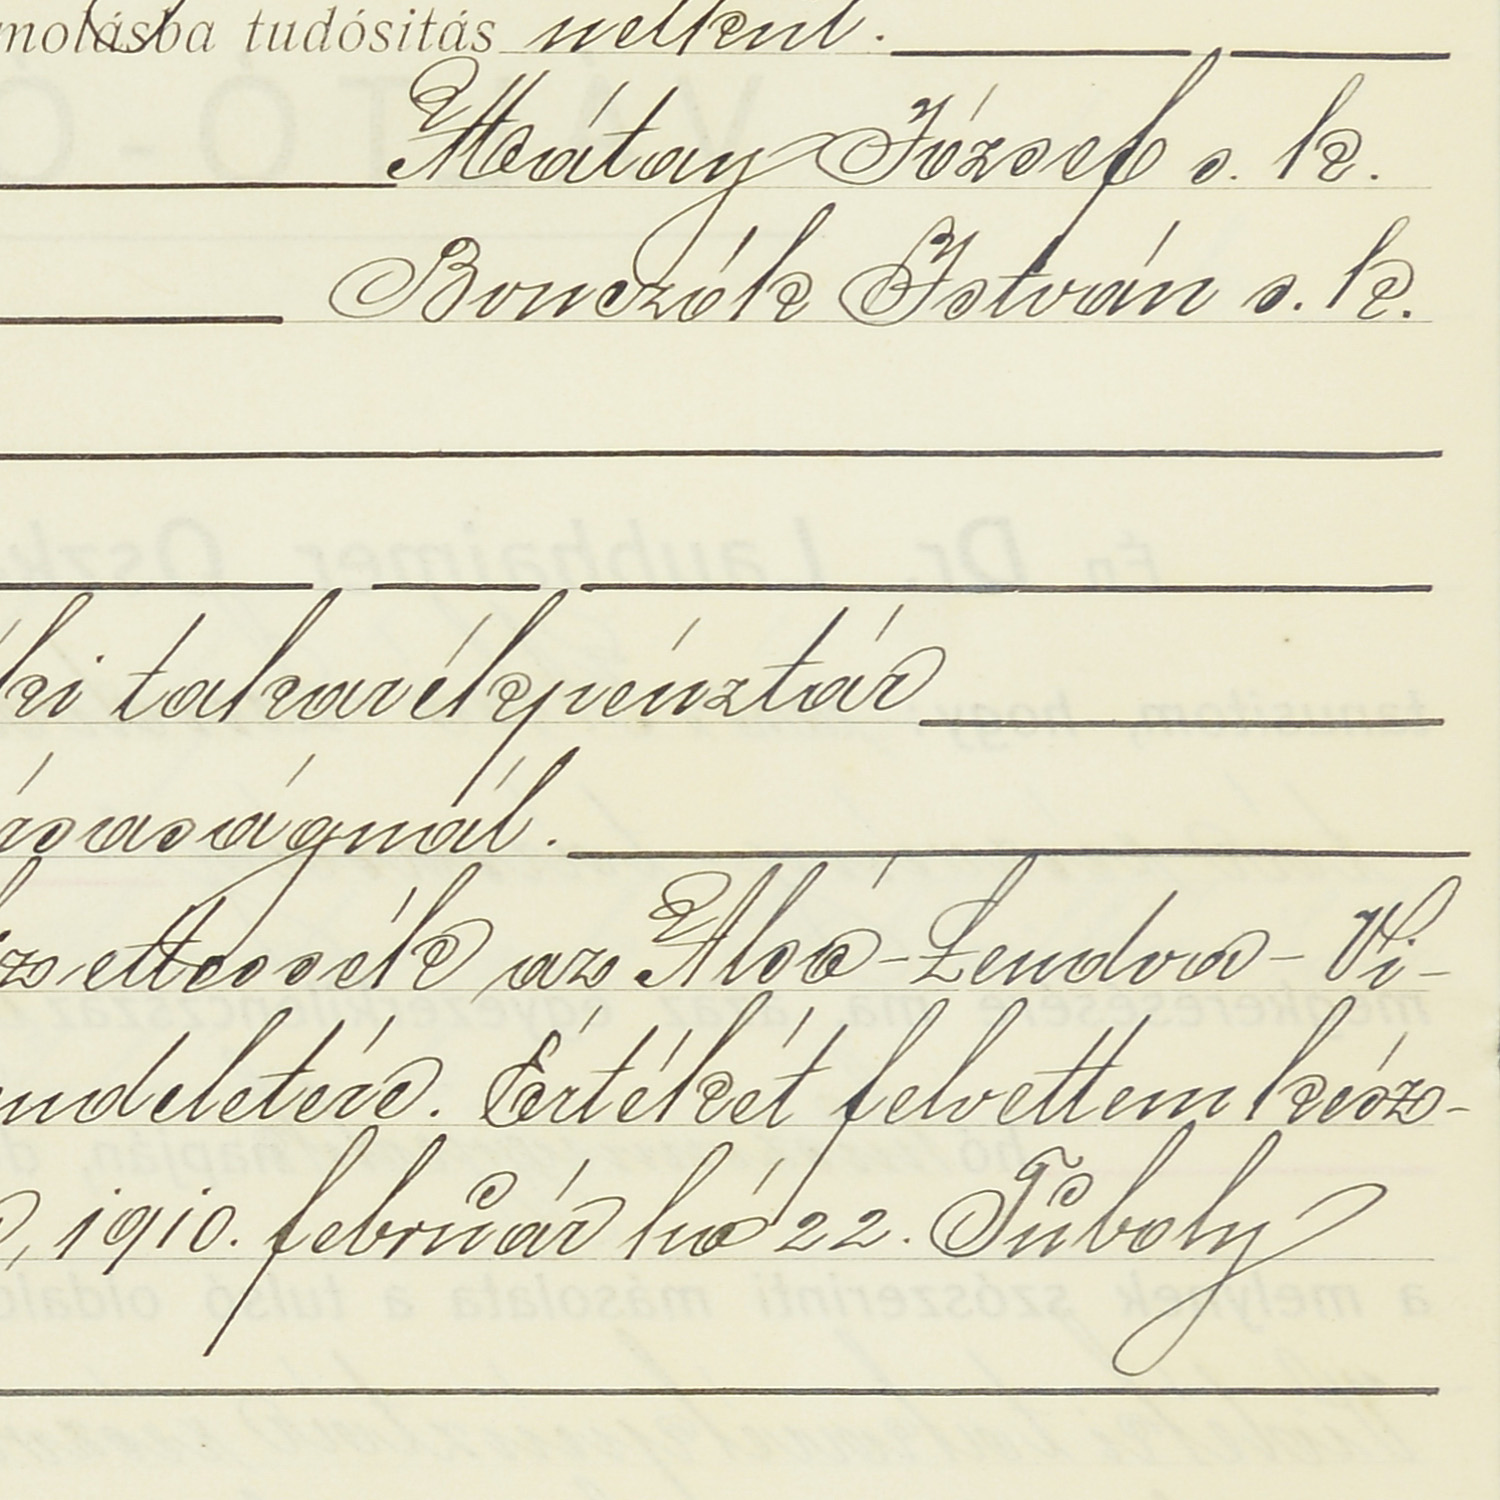 molásba tudósitás nélkül.
Mátay József s. k.
Bonczók István s. k.
ki takarékpénztár
ársaságnál.
izettessék az Alsó-Lendva-Vi-
ndeletére. Értékét felvettem kész-
, 1910. február hó 22. Tuboly